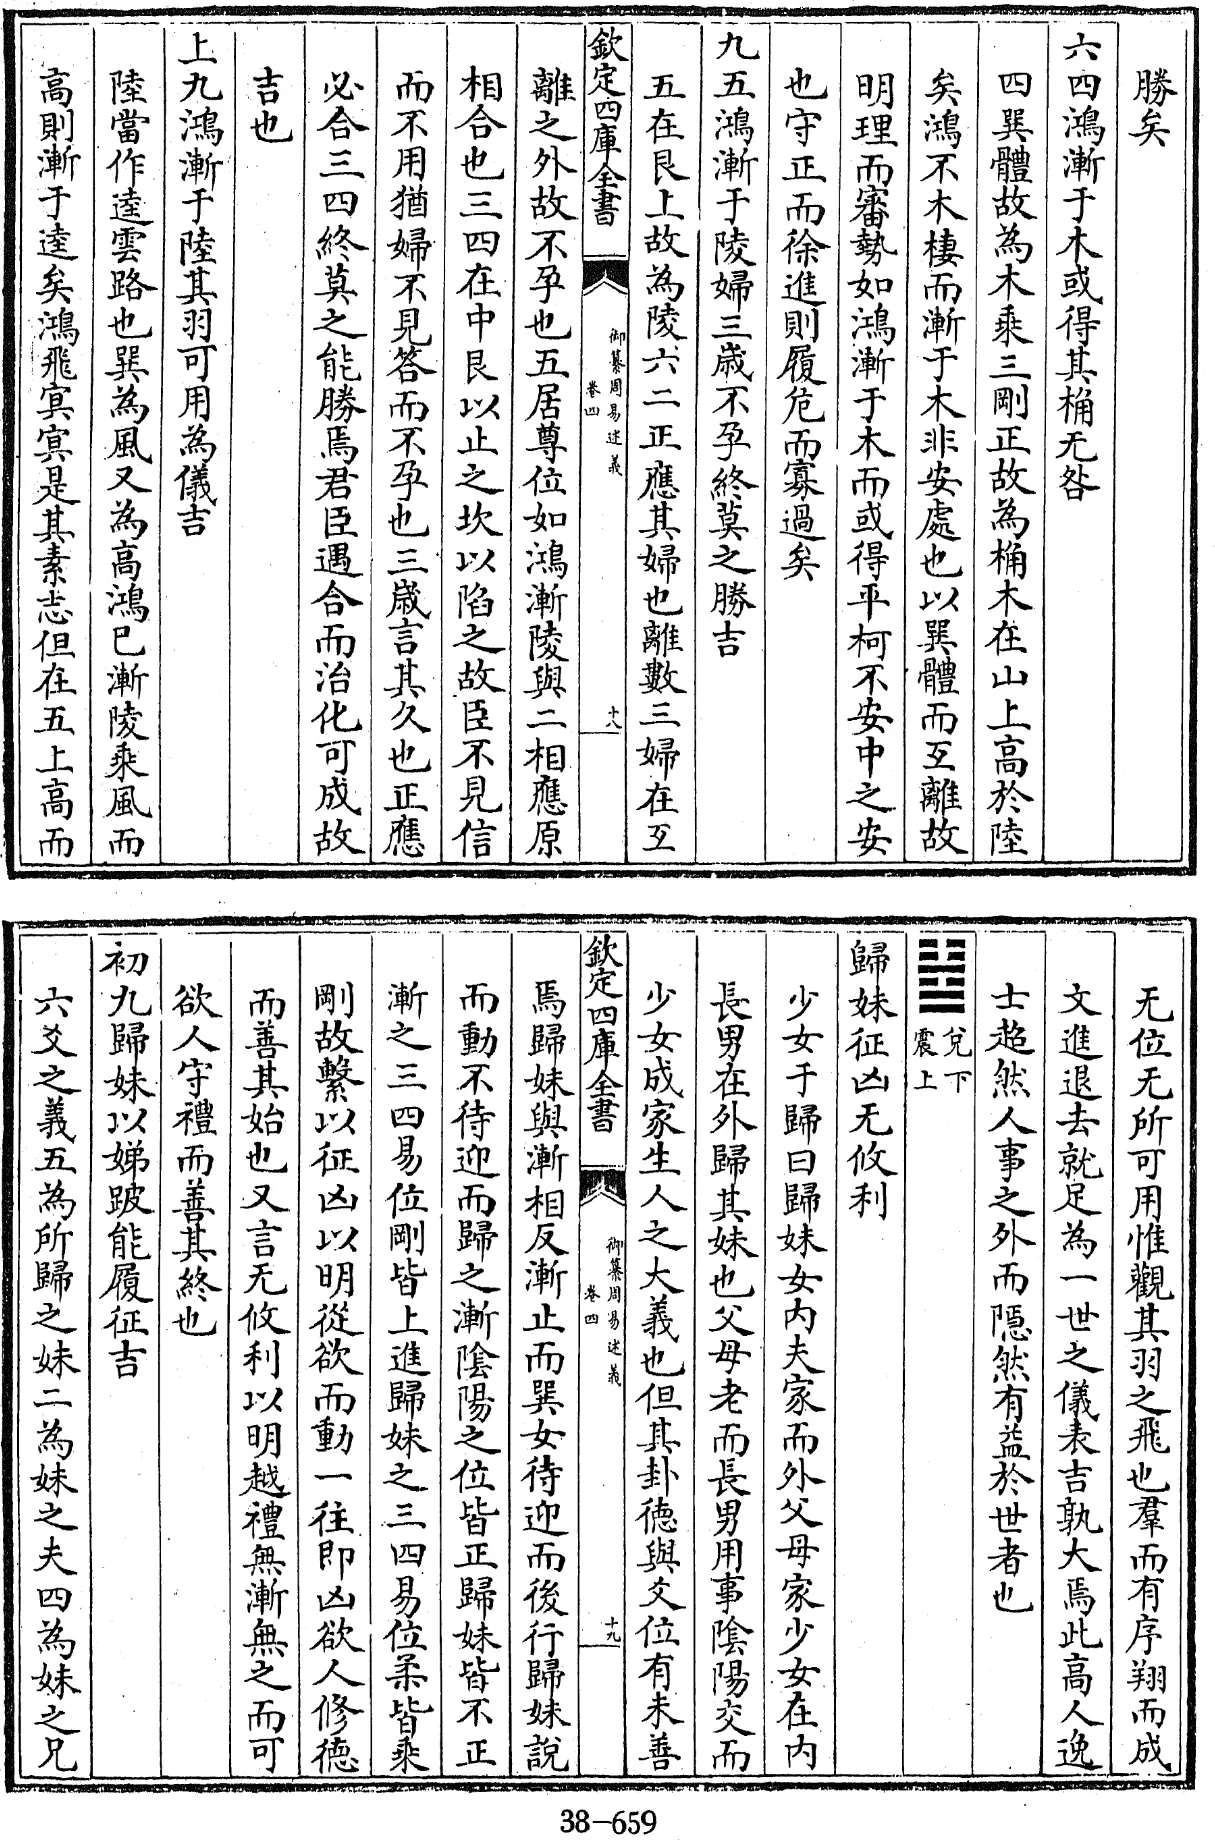 勝矣
六四鴻漸于木或得其桷无咎
四巽體故為木乘三剛正故為桷木在山上高於陸
矣鴻不木棲而漸于木非安處也以巽體而互離故
明理而審勢如鴻漸于木而或得平柯不安中之安
也守正而徐進則履危而寡過矣
九五鴻漸于陵婦三歲不孕終莫之勝吉
五在艮上故為陵六二正應其婦也離數三婦在互
欽定四庫全書
御纂周易述義
卷四
十八
離之外故不孕也五居尊位如鴻漸陵與二相應原
相合也三四在中艮以止之坎以陷之故臣不見信
而不用猶婦不見答而不孕也三歲言其久也正應
必合三四終莫之能勝焉君臣遇合而治化可成故
吉也
上九鴻漸于陸其羽可用為儀吉
陸當作逵雲路也巽為風又為高鴻已漸陵乘風而
高則漸于逵矣鴻飛寘寘是其素志但在五上高而
无位无所可用惟觀其羽之飛也羣而有序翔而成
文進退去就足為一世之儀表吉孰大焉此高人逸
士超然人事之外而隱然有益於世者也
䷵
兌下
震上
歸妹征凶无攸利
少女于歸曰歸妹女內夫家而外父母家少女在內
長男在外歸其妹也父母老而長男用事陰陽交而
少女成家生人之大義也但其卦德與爻位有未善
欽定四庫全書
御纂周易述義
卷四
十九
焉歸妹與漸相反漸止而巽女待迎而後行歸妹說
而動不待迎而歸之漸陰陽之位皆正歸妹皆不正
漸之三四易位剛皆上進歸妹之三四易位柔皆乘
剛故繫以征凶以明從欲而動一往即凶欲人修德
而善其始也又言无攸利以明越禮無漸無之而可
欲人守禮而善其終也
初九歸妹以娣跛能履征吉
六爻之義五為所歸之妹二為妹之夫四為妹之兄
38-659